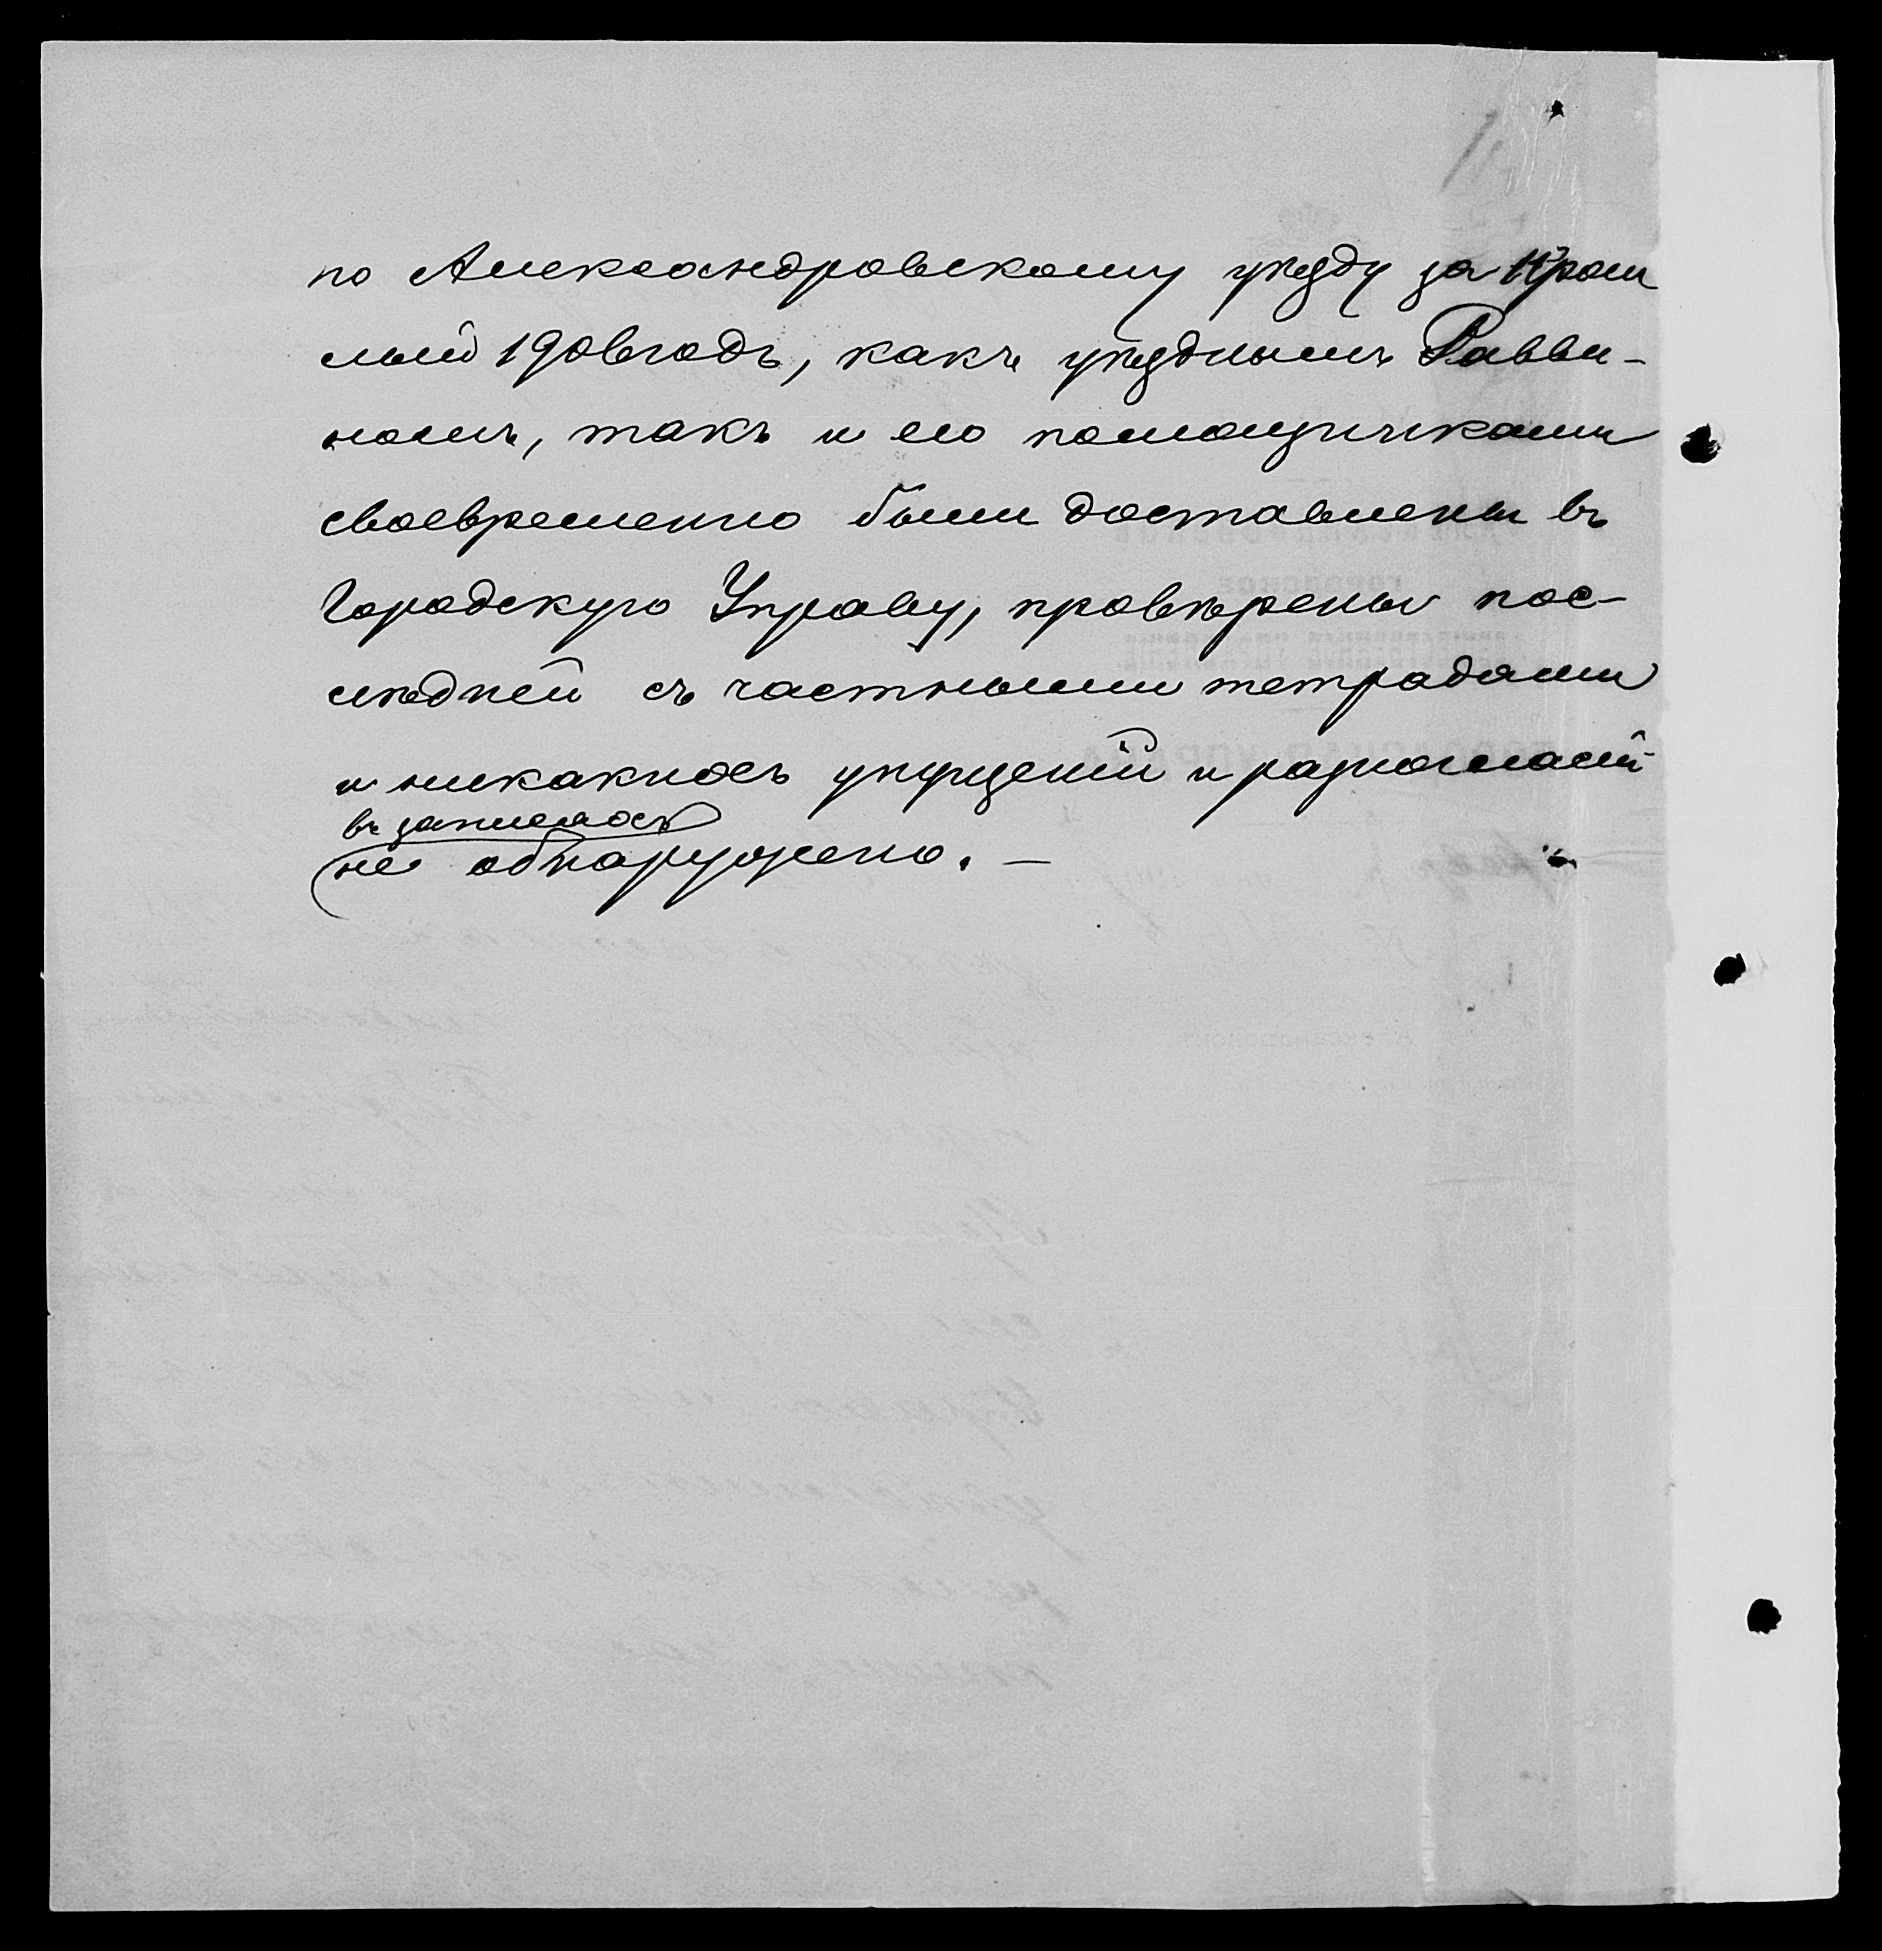 по Александровскому уѣзду за прош
лый 1906 годъ, какъ уѣзднымъ Равви-
номъ, такъ и его помощниками
своевременно были доставлены въ
Городскую Управу, провѣрены пос-
лѣдней съ частными тетрадами
и никакихъ упущеній и разногласій
въ записяхъ
не обнаружено. —